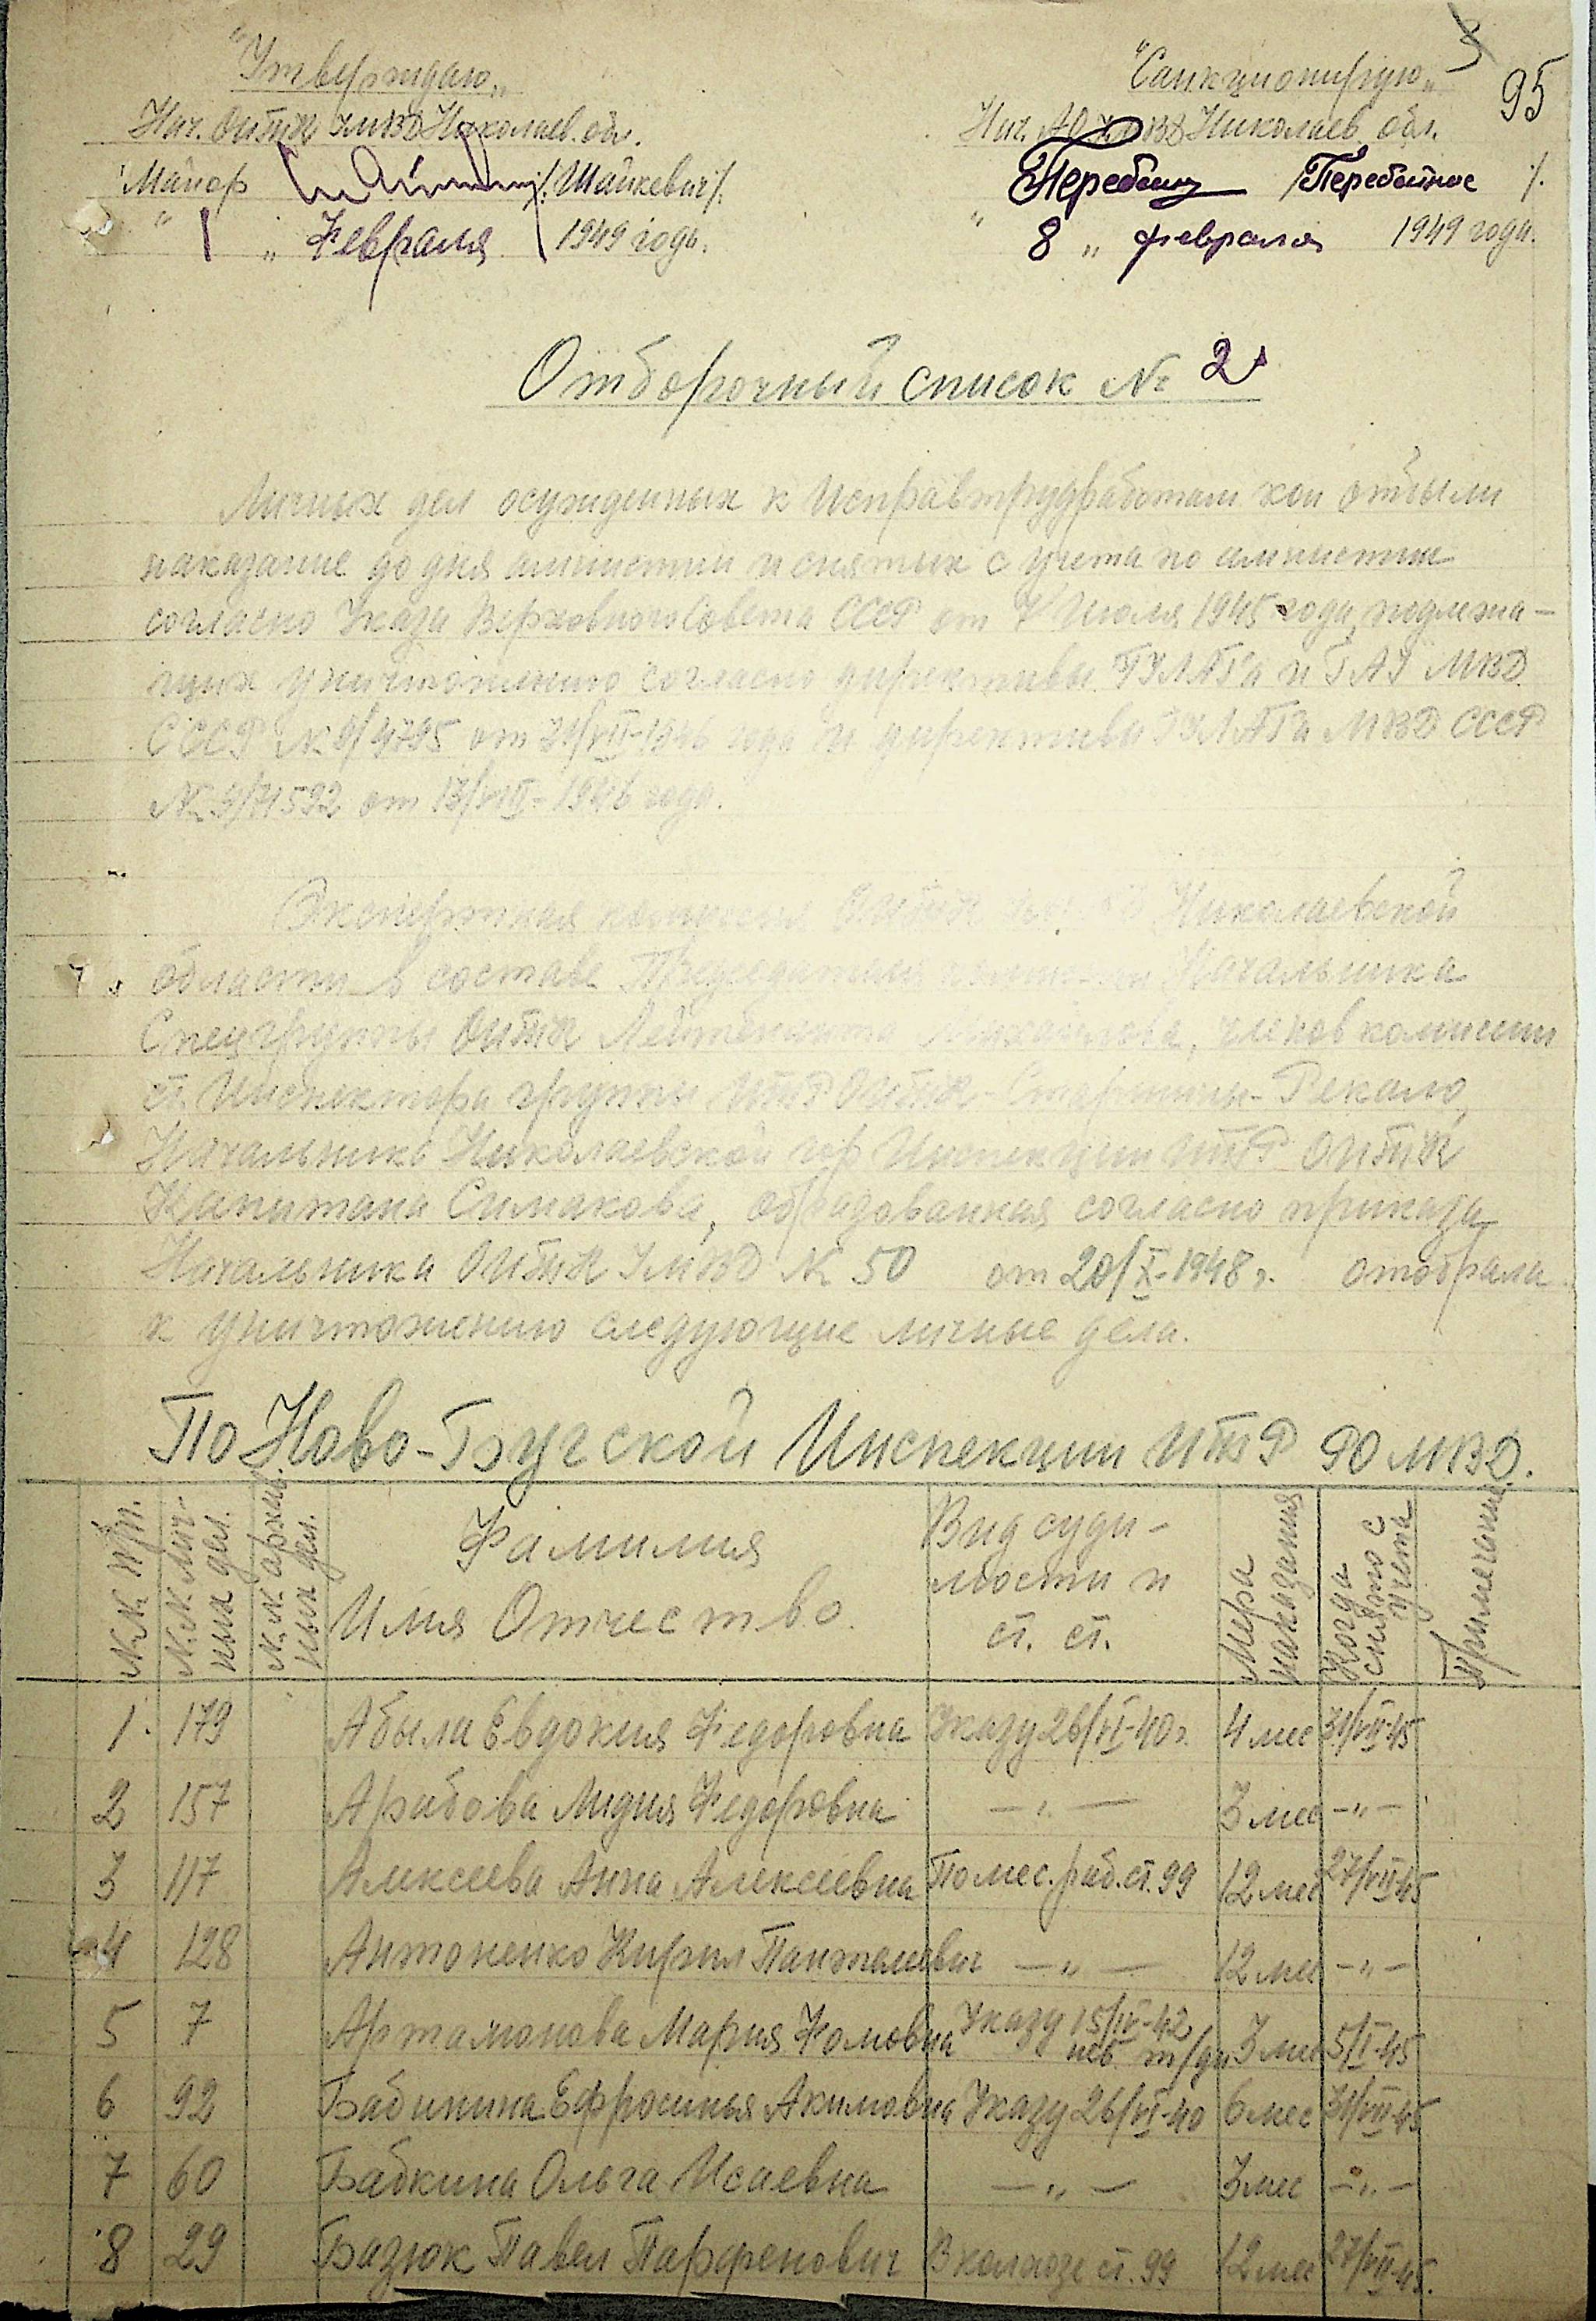 95
"Утверждаю"
Нач. ОИТК УМВД Николаев. обл.
Майор /Шайкевич/.
" 1 " Февраля 1949 года.
"Санкционирую"
Нач. АО УМВД Николаев. обл.
/Перебейнос /.
" 8 " февраля 1949 года.
Отборочный список № 2
Личных дел осужденных к Исправтрудработам кои отбыли
наказание до дня амнистии и снятых с учета по амнистии
согласно Указа Верховного Совета СССР от 7 Июля 1945 года, подлежа-
щих уничтожению согласно директивы ГУЛАГа и ГАУ МВД
СССР № 9/4795 от 1946 года и директивы ГУЛАГа МВД СССР
№ от 13/VIII-1946 года.
Экспертная комиссия ОИТК Николаевской
области в составе Председателя Начальника
Спецгруппы ОИТК Лейтенанта членов комиссии
ст. Инспектора группы ИТР ОИТК - Старшины - Рекало,
Начальника Николаевской гор Инспекции ИТР ОИТК
Капитана Симакова, образованная согласно приказа
Начальника ОИТК УМВД № 50 от 20/X-1948 г. отобрала
к уничтожению следующие личные дела.
По Ново-Бугской Инспекции ИТР РО МВД.
№№ п/п. №№ лич- ных дел. №№ архив ных дел. Фамилия Имя Отчество. Вид суди- мости и ст. ст. Мера наказания Когда снято с учета Примечание
1. 179 Абыла Евдокия Федоровна Указу 26/VI-40 г. 4 мес 31/VII-45
2 157 Арабова Лидия Федоровна —"— 3 мес —"—
3 117 Алексеева Анна Алексеевна По мес. раб. ст. 99 12 мес 27/VII-45
4 128 Антоненко Кирил Панталевич —"— 12 мес —"—
5 7 Артамонова Мария Фомовна Указу 15/IV-42 нев. т/дн 3 мес 5/I-45
6 92 Бабинина Ефросинья Акимовна Указу 26/VI-40 6 мес 31/VII-45
7 60 Бабкина Ольга Исаевна —"— 3 мес —"—
8 29 Базюк Павел Парфенович В колхозе ст. 99 12 мес 27/VII-45.